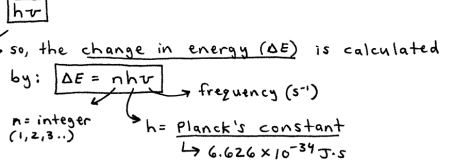 hν
so, the change in energy (ΔE) is calculated
by: ΔE = nhν
frequency (s⁻¹)
n = integer
(1,2,3..)
h = Planck's constant
↳ 6.626 × 10⁻³⁴ J·s